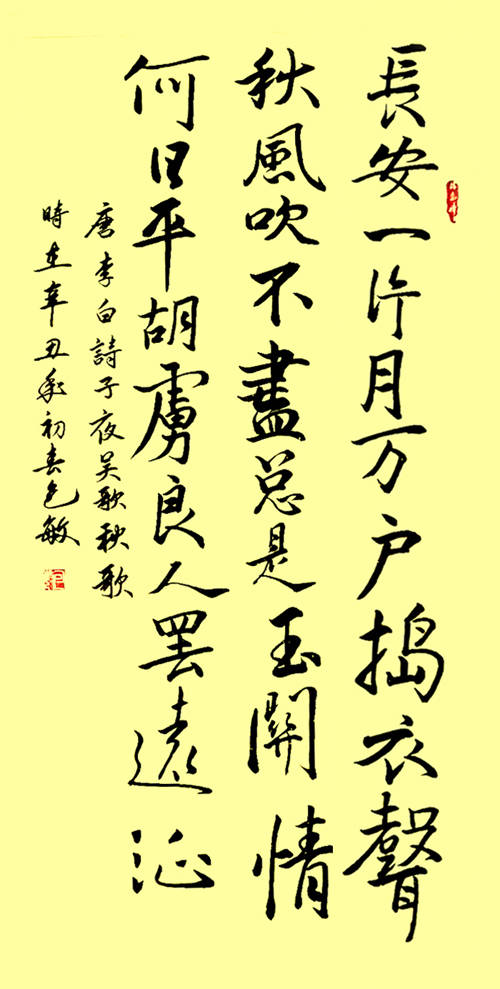 長安一片月万户搗衣聲
秋風吹不盡总是玉關情
何日平胡虜良人罷遠征
唐李白詩子夜吴歌秋歌
時在辛丑秊初春包敏